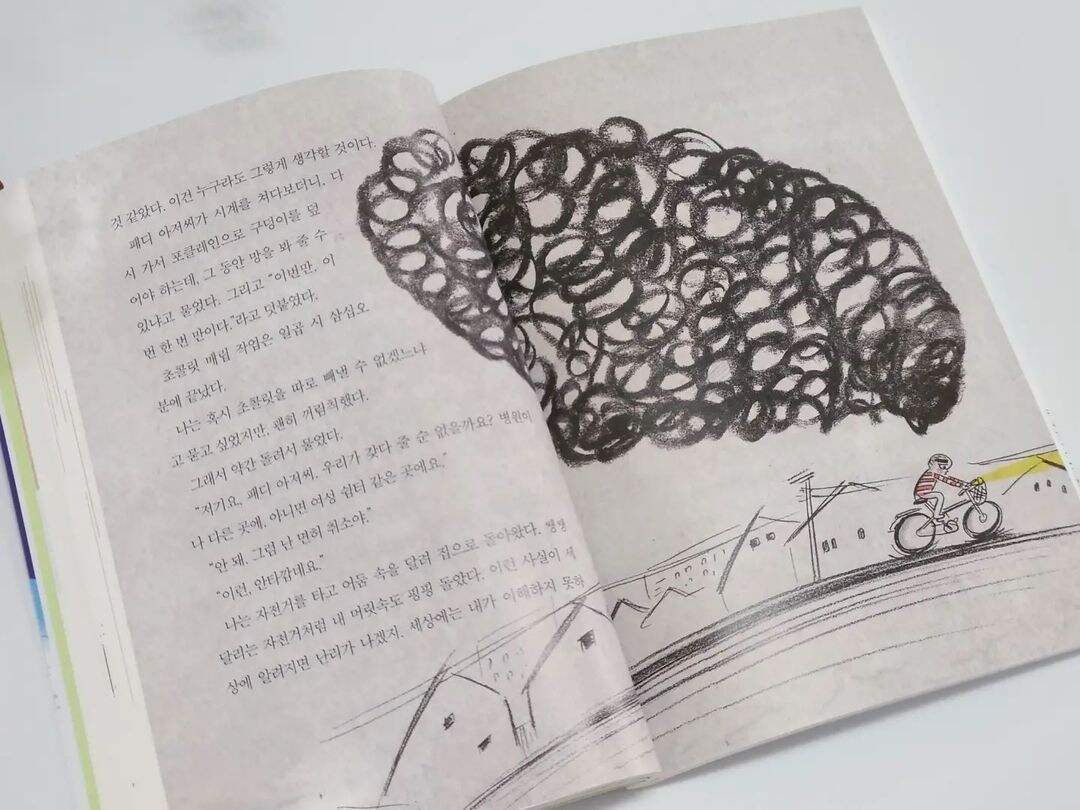 것 같았다. 이건 누구라도 그렇게 생각할 것이다.
패디 아저씨가 시계를 쳐다보더니, 다
시 가서 포클레인으로 구덩이를 덮
어야 하는데, 그 동안 망을 봐 줄 수
있냐고 물었다. 그리고 “이번만, 이
번 한 번 만이다.”라고 덧붙였다.
초콜릿 매립 작업은 일곱 시 삼십오
분에 끝났다.
나는 혹시 초콜릿을 따로 빼낼 수 없겠느냐
고 묻고 싶었지만, 괜히 꺼림칙했다.
그래서 약간 돌려서 물었다.
“저기요, 패디 아저씨. 우리가 갖다 줄 순 없을까요? 병원이
나 다른 곳에, 아니면 여성 쉼터 같은 곳에요.”
“안 돼. 그럼 난 면허 취소야.”
“이런, 안타깝네요.”
나는 자전거를 타고 어둠 속을 달려 집으로 돌아왔다. 쌩쌩
달리는 자전거처럼 내 머릿속도 핑핑 돌았다. 이런 사실이 세
상에 알려지면 난리가 나겠지. 세상에는 내가 이해하지 못하